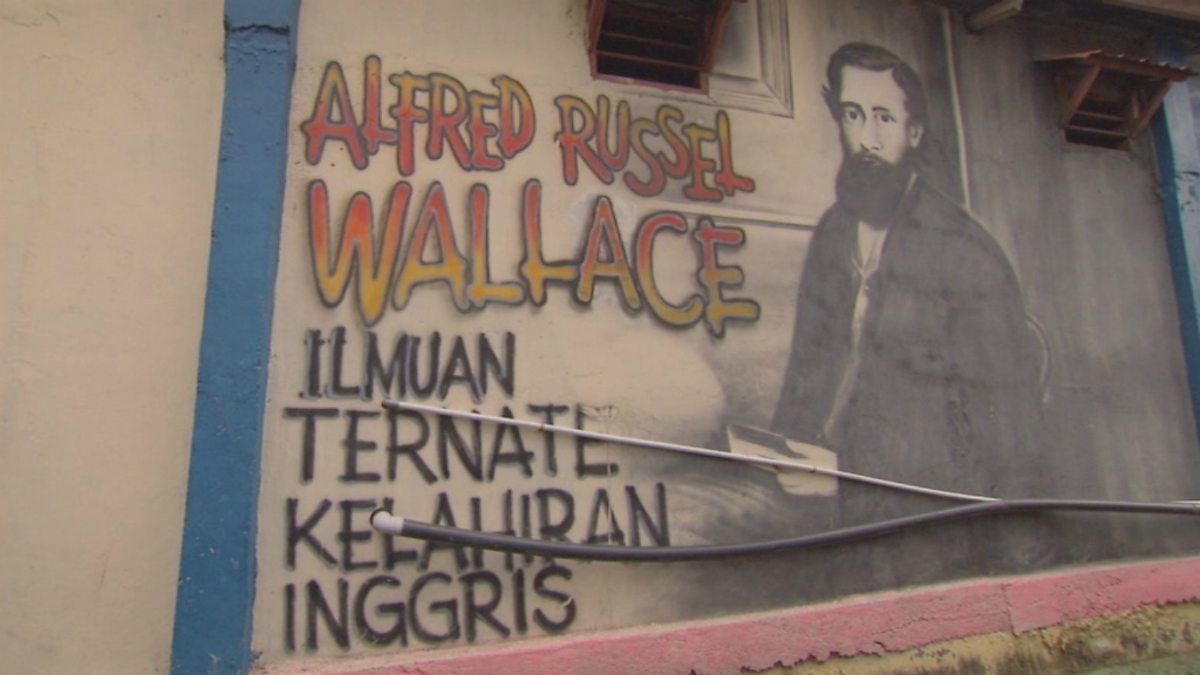 ALFRED RUSSEL
WALLACE
ILMUAN
TERNATE
KELAHIRAN
INGGRIS